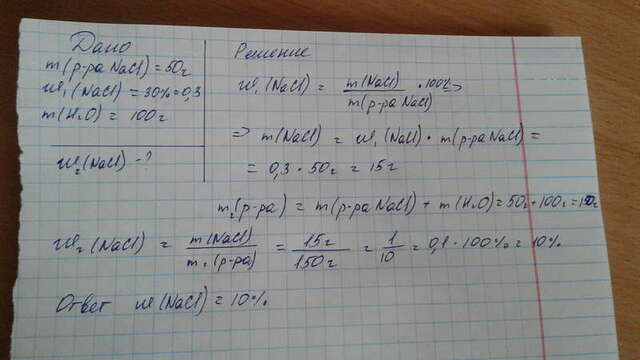 Дано
m(р-ра NaCl) = 50г
w₁(NaCl) = 30% = 0,3
m(H₂O) = 100г
w₂(NaCl) - ?
Решение
w₁(NaCl) = m(NaCl) / m(р-ра NaCl) · 100% =>
=> m(NaCl) = w₁(NaCl) · m(р-ра NaCl) =
= 0,3 · 50г = 15г
m₂(р-ра) = m(р-ра NaCl) + m(H₂O) = 50г + 100г = 150г
w₂(NaCl) = m(NaCl) / m₂(р-ра) = 15г / 150г = 1/10 = 0,1 · 100% = 10%
Ответ w(NaCl) = 10%